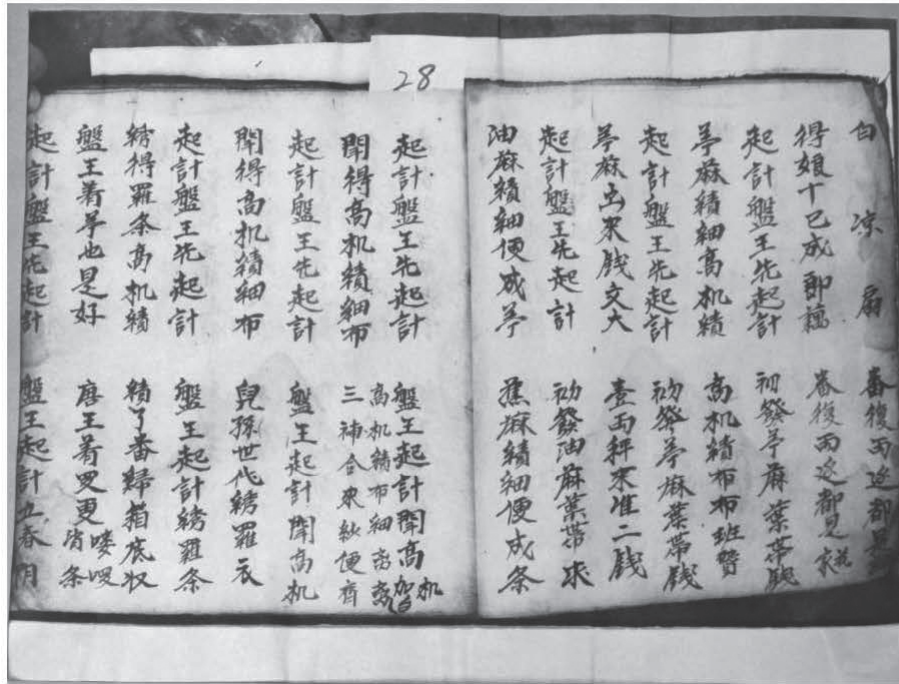 28
白涼扇 番復両边都是
得娘十已成郎福 番復両边都是
起計盤王先起計 初發苧麻葉帶錢
苧麻績細高机績 高机績布布班
起計盤王先起計 初發苧麻葉帶錢
苧麻出來錢文大 壹両秤來准二錢
起計盤王先起計 初發油麻葉帶來
油麻績細便成苧 蕉麻績細便成条
起計盤王先起計 盤王起計開高机
開得高机績細布 高机績布細
三補合來紗便有
起計盤王先起計 盤王起計開高机
開得高机績細布 兒孫世代綉羅衣
起計盤王先起計 盤王起計綉羅条
綉得羅条高机績 績了番歸箱底収
盤王着苧也是好 唐王着更
起計盤王先起計 盤王起計立春